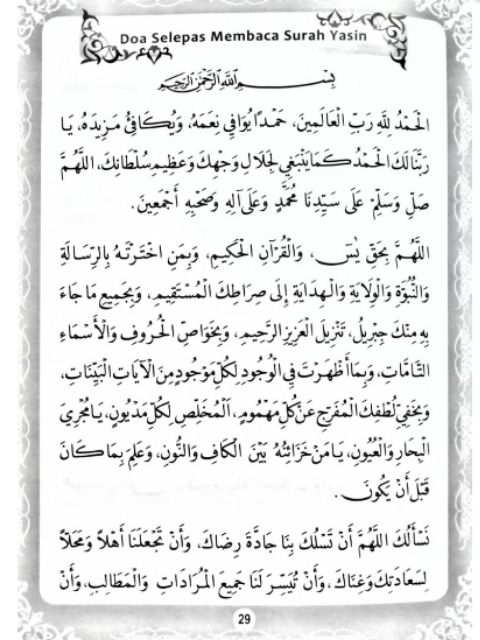 Doa Selepas Membaca Surah Yasin
بِسْمِ اللَّهِ الرَّحْمٰنِ الرَّحِيمِ
الْحَمْدُ لِلَّهِ رَبِّ الْعَالَمِينَ، حَمْدًا يُوَافِي نِعَمَهُ، وَيُكَافِئُ مَزِيدَهُ، يَا
رَبَّنَا لَكَ الْحَمْدُ كَمَا يَنْبَغِي لِجَلَالِ وَجْهِكَ وَعَظِيمِ سُلْطَانِكَ، اللَّهُمَّ
صَلِّ وَسَلِّمْ عَلَى سَيِّدِنَا مُحَمَّدٍ وَعَلَى آلِهِ وَصَحْبِهِ أَجْمَعِينَ.
اللَّهُمَّ بِحَقِّ يٰسٓ، وَالْقُرْآنِ الْحَكِيمِ، وَبِمَنِ اخْتَرْتَهُ بِالرِّسَالَةِ
وَالنُّبُوَّةِ وَالْوِلَايَةِ وَالْهِدَايَةِ إِلَى صِرَاطِكَ الْمُسْتَقِيمِ، وَبِجَمِيعِ مَا جَاءَ
بِهِ مِنْكَ جِبْرِيلُ، تَنْزِيلَ الْعَزِيزِ الرَّحِيمِ، وَبِخَوَاصِّ الْحُرُوفِ وَالْأَسْمَاءِ
التَّامَّاتِ، وَبِمَا أَظْهَرْتَ فِي الْوُجُودِ لِكُلِّ مَوْجُودٍ مِنَ الْآيَاتِ الْبَيِّنَاتِ،
وَبِخَفِيِّ لُطْفِكَ الْمُفَرِّجِ عَنْ كُلِّ مَهْمُومٍ، اَلْمُخَلِّصِ لِكُلِّ مَدْيُونٍ، يَا مُجْرِيَ
الْبِحَارِ وَالْعُيُونِ، يَا مَنْ خَزَائِنُهُ بَيْنَ الْكَافِ وَالنُّونِ، وَعَلِمَ بِمَا كَانَ
قَبْلَ أَنْ يَكُونَ.
نَسْأَلُكَ اللَّهُمَّ أَنْ تَسْلُكَ بِنَا جَادَّةَ رِضَاكَ، وَأَنْ تَجْعَلَنَا أَهْلًا وَمَحَلًّا
لِسَعَادَتِكَ وَغِنَاكَ، وَأَنْ تُيَسِّرَ لَنَا جَمِيعَ الْمُرَادَاتِ وَالْمَطَالِبِ، وَأَنْ
29